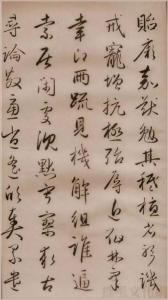 貽厥嘉猷勉其祗植省躬譏
誡寵增抗極殆辱近恥林皋
幸即兩疏見機解組誰逼
索居閒處沈默寂寥求古
尋論散慮逍遙欣奏累遣